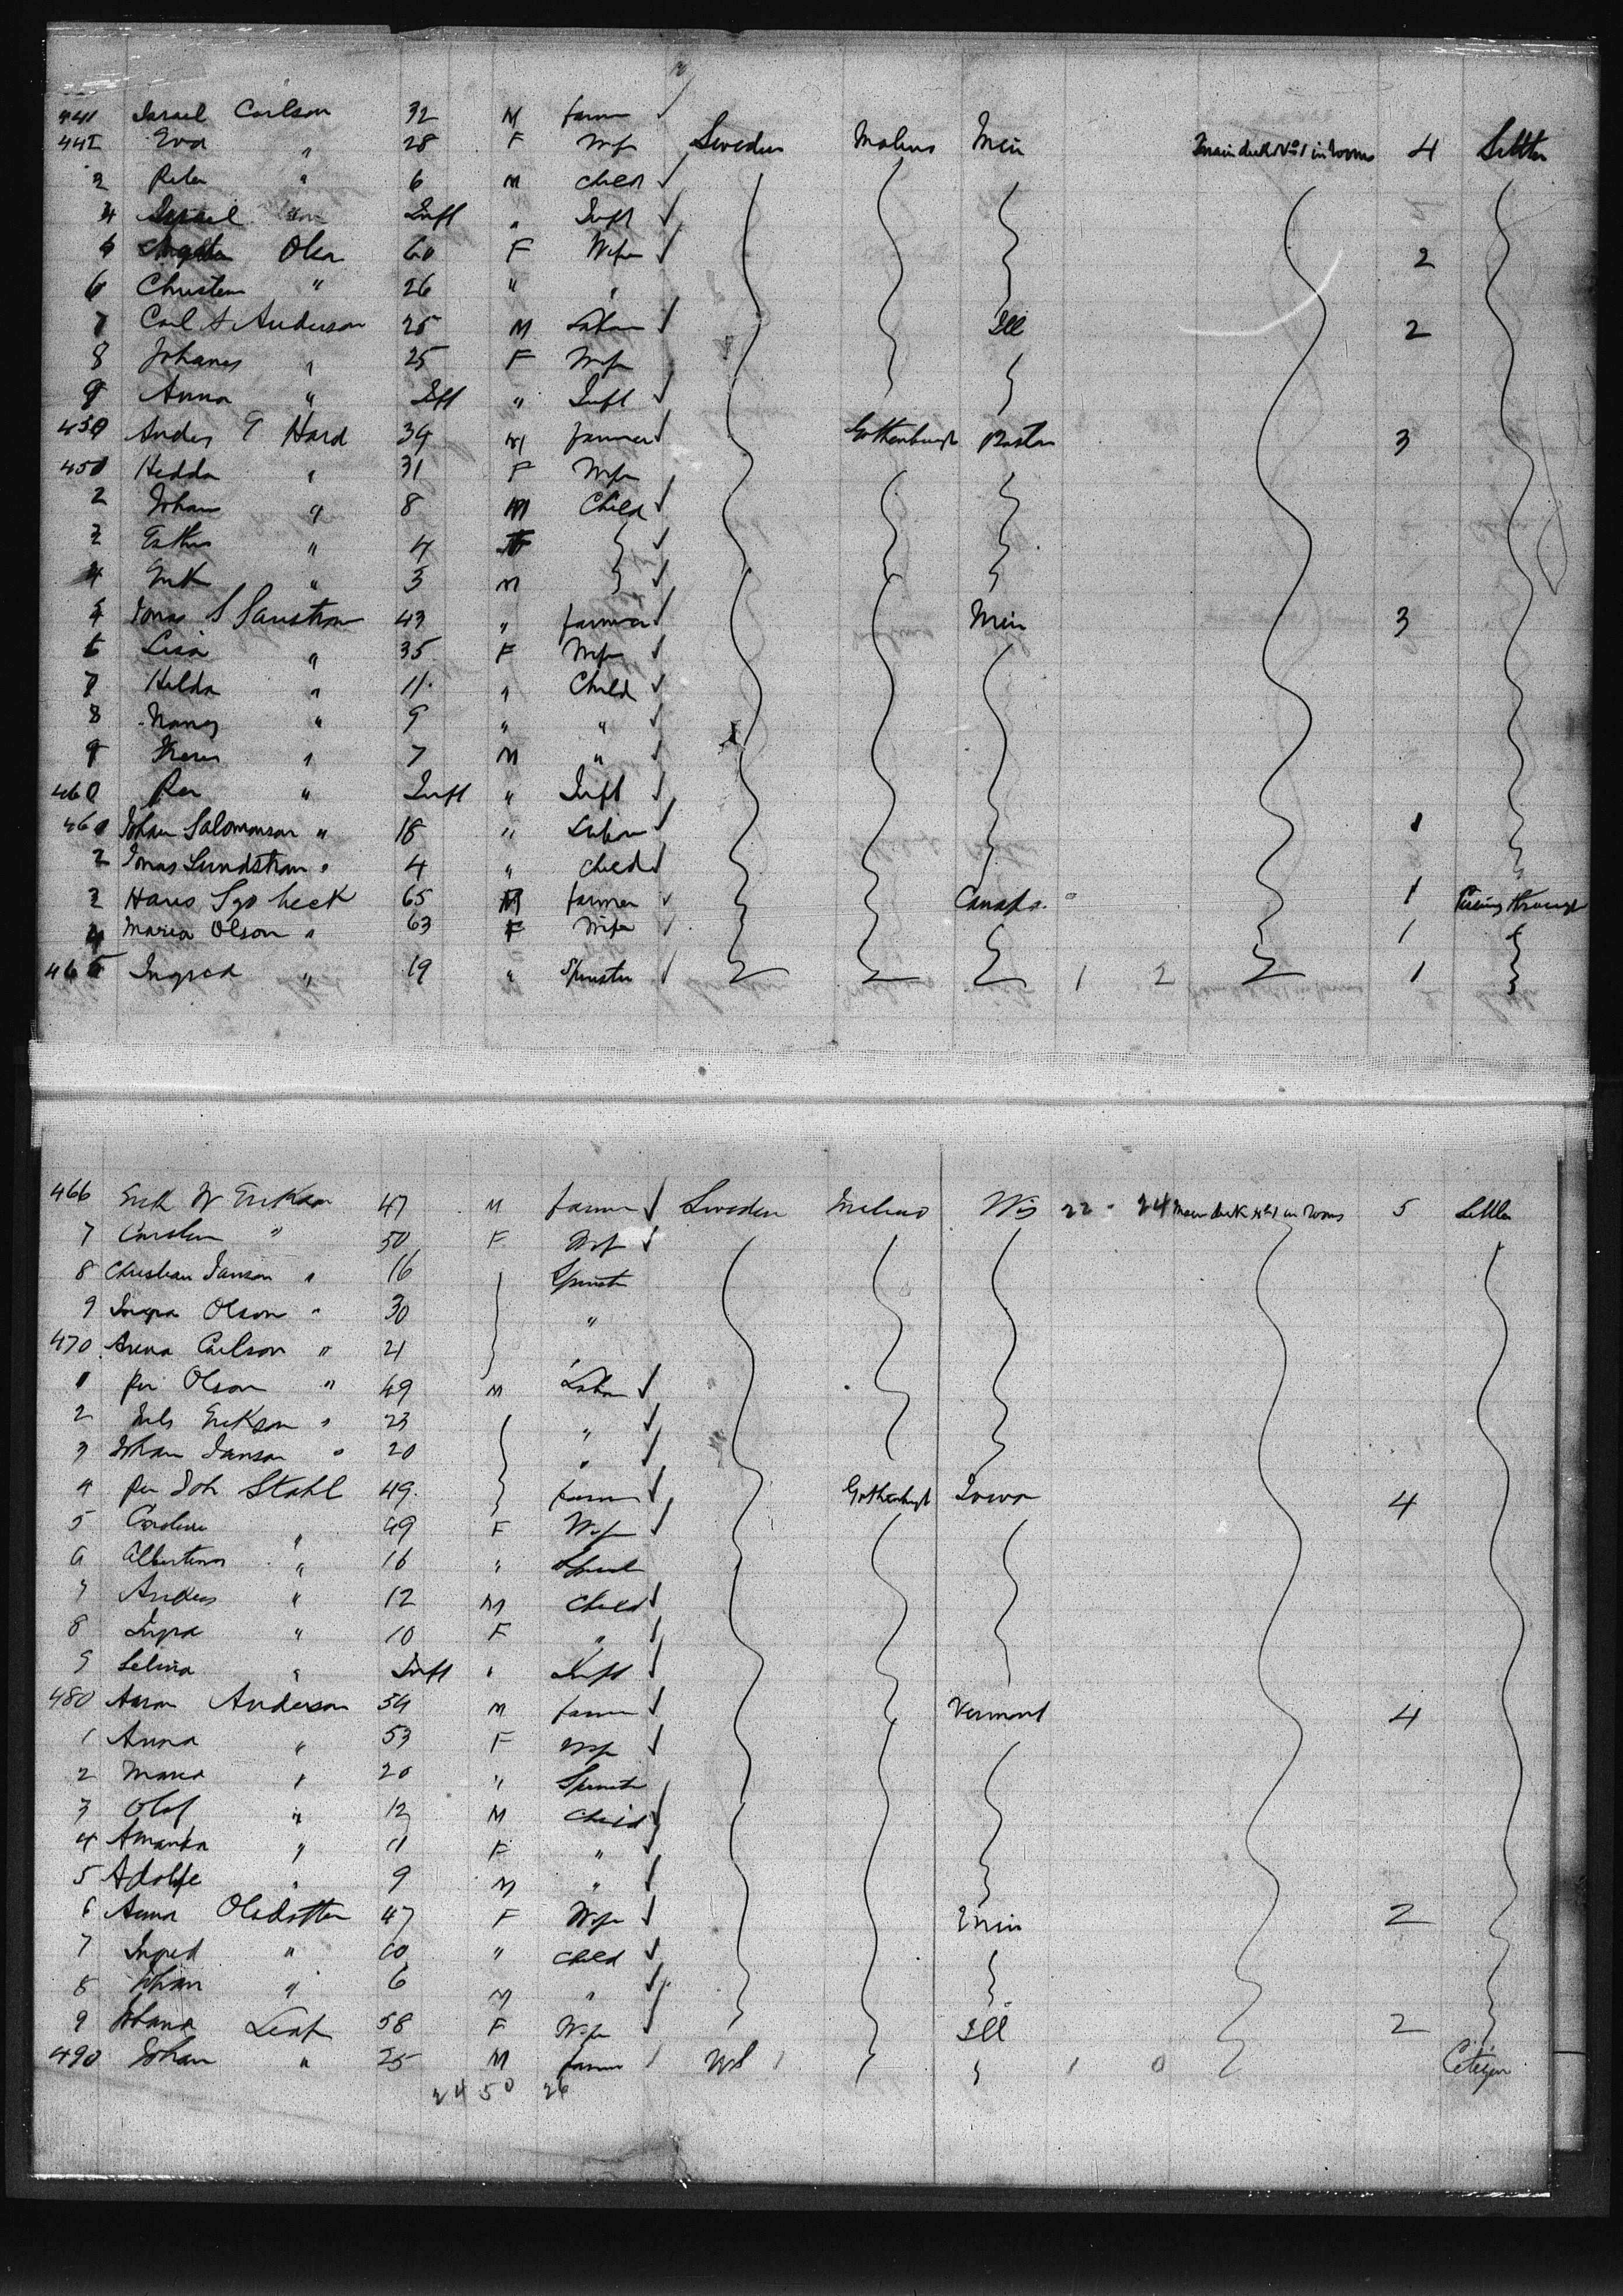 441 Israel Carlson 32 M farm
442 Eva " 28 F Wife Sweden Malmo Min Main deck No 1 in rooms 4 Settler
3 Peter " 6 M child
4 Israel Inft " Inft
Olson 60 F Wife 2
6 Christen " 26 " "
7 Carl A Anderson 25 M Labor Ill 2
8 Johanes " 25 F Wife
9 Anna " Inft " Inft
450 Andes E Hard 34 M farmer Gothenburgh Boston 3
450 Hedda " 31 F Wife
2 Johan " 8 M Child
3 Esther " 4 F
4 Erik " 3 M
5 Jonas S 43 " farmer Min 3
6 Lisa " 35 F Wife
7 Hilda " 11 " Child
8 Nancy " 9 " "
9 " 7 M "
460 Per " Inft " Inft
460 Johan Salomonson " 18 " Labor 1
2 Jonas Lundstrom " 4 " child
3 Hans 65 M farmer 1 through
4 Maria Olson " 63 F Wife 1
465 Ingrid " 19 " Spinster 1 2 1
466 Erik W Erikson 47 M farmer Sweden Malmo Wis 22 24 Main deck No 1 in rooms 5 Settler
7 " 50 F Wife
8 Christian Janson " 16 Spinster
9 Inga Olson " 30 "
470 Anna Carlson " 21 "
1 Per Olson " 49 M Labor
2 Nels Erikson " 23 "
3 Johan Janson " 20 "
4 Per Joh Stahl 49 farm Gothenburgh Iowa 4
5 Caroline " 49 F Wife
6 Albertina " 16 "
7 Anders " 12 M Child
8 Ingra " 10 F "
9 Selina " Inft " Inft
480 Aaron Anderson 54 M farm Vermont 4
1 Anna " 53 F Wife
2 Maria " 20 " Spinster
3 Olof " 12 M Child
4 Amanda " 11 F "
5 Adolfe " 9 M "
6 Anna Olsdotter 47 F Wife Min 2
7 Ingred " 10 " child
8 Johan " 6 M "
9 Johana Leaf 58 F Wife Ill 2
490 Johan " 25 M farm US 1 0 Citizen
24 50 26